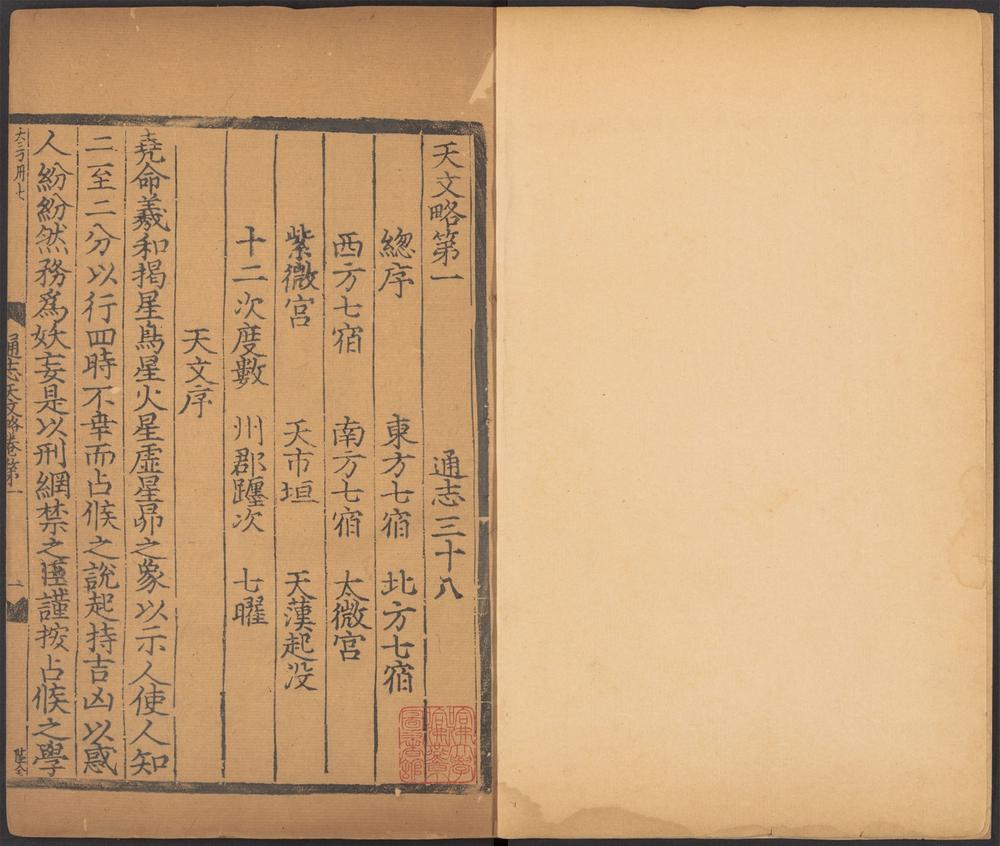 天文略第一　通志三十八
緫序　東方七宿　北方七宿
西方七宿　南方七宿　太微宫
紫微宫　天市垣　天漢起没
十二次度數　州郡躔次　七曜
天文序
堯命羲和揭星鳥星火星虛星昴之象以示人使人知
二至二分以行四時不幸而占候之說起持吉凶以惑
人紛紛然務爲妖妄是以刑網禁之臣謹按占候之學
通志天文略卷第一
一
哈佛大學哈佛燕京圖書館